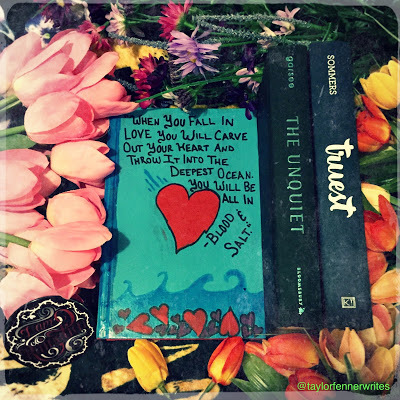 WHEN YOU FALL IN
LOVE YOU WILL CARVE
OUT YOUR HEART AND
THROW IT INTO THE
DEEPEST OCEAN.
YOU WILL BE
ALL IN
-BLOOD &
SALT.
garsee
THE UNQUIET
BLOOMSBURY
SOMMERS
truest
KT
@taylorfennerwrites